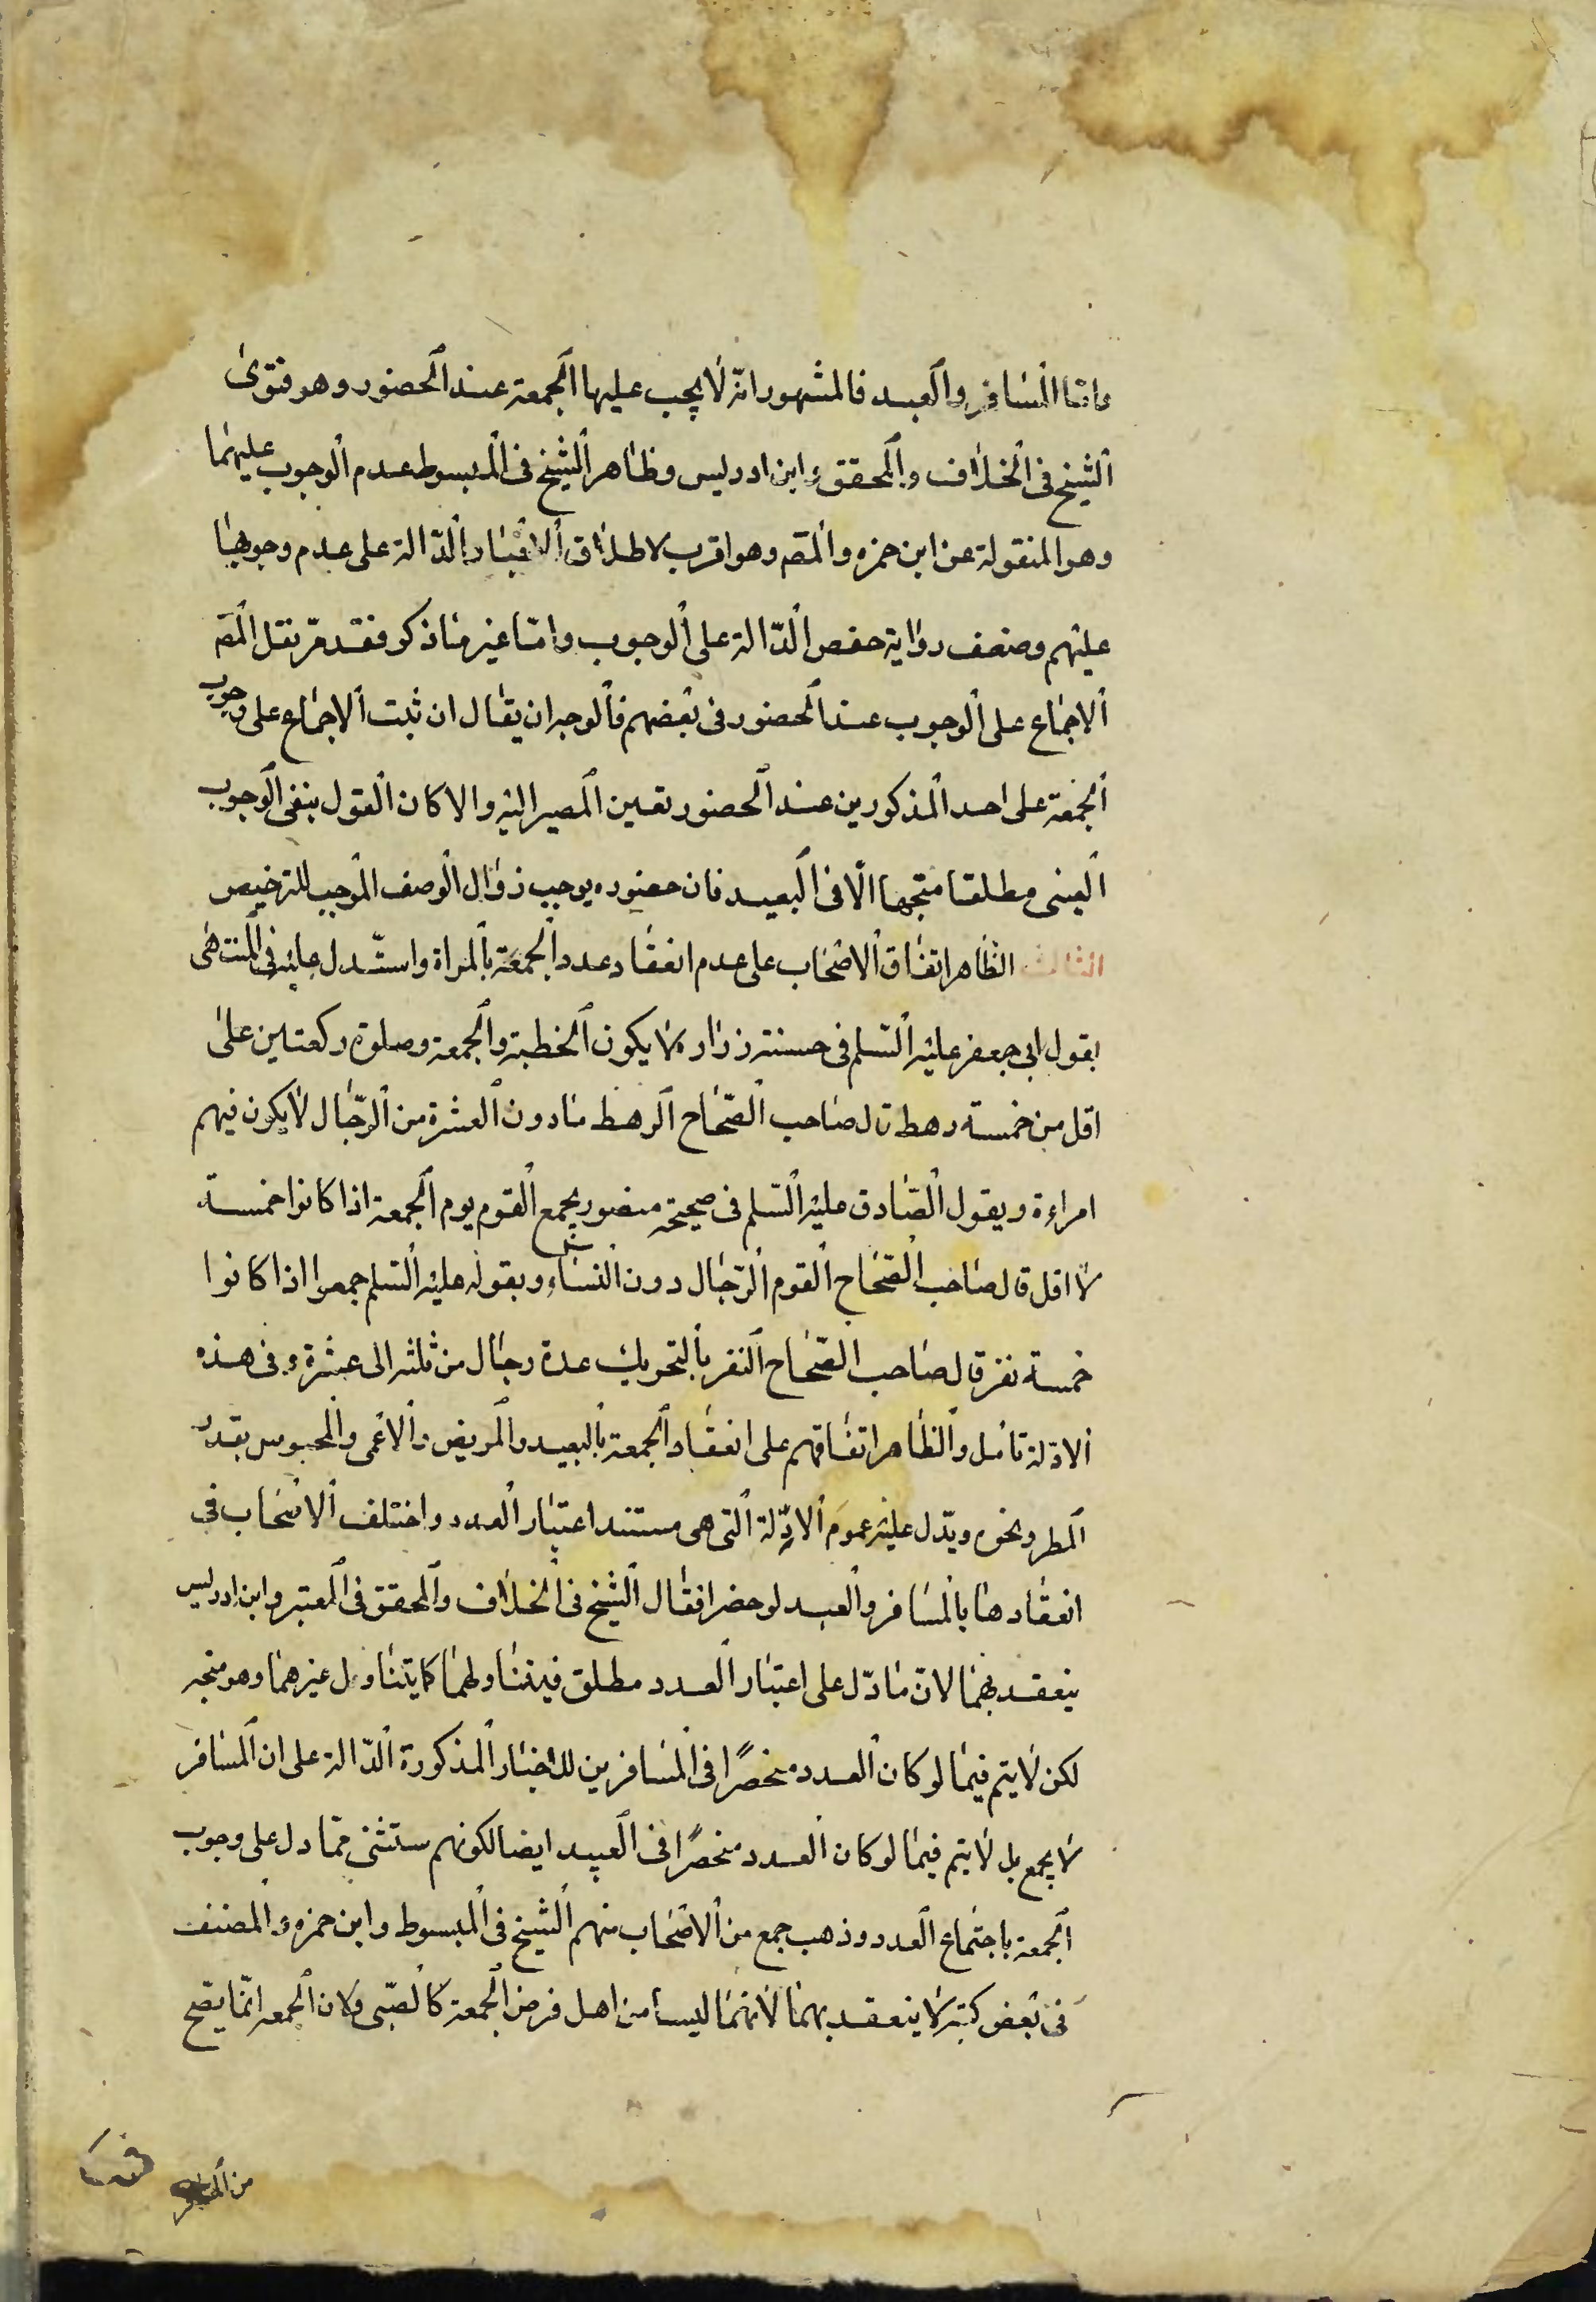 واما المسافر والعبد فالمشهور انه لا يجب عليها الجمعة عند الحضور وهو فتوى
الشيخ فى الخلاف والمحقق وابن ادريس وظاهر الشيخ فى المبسوط عدم الوجوب عليهما
وهو المنقولة عن ابن حمزه والمص وهو اقرب لاطلاق الاخبار الدّالة على عدم وجوبها
عليهم وضعف رواية حفص الدّالة على الوجوب وامّا غير ما ذكر فقد مرّ نقل المص
الاجماع على الوجوب عند الحضور فى بعضهم فالوجه ان يقال ان ثبت الاجماع على وجوب
الجمعة على احد المذكورين عند الحضور تعين المصير اليه والا كان القول بنفى الوجوب
العينى مطلقا متجها الّا فى البعيد فان حضوره يوجب زوال الوصف الموجب للترخيص
الثالث الظاهر اتفاق الاصحاب على عدم انعقاد عدد الجمعة بالمراة واستدل عليه فى المنتهى
بقول ابى جعفر عليه السلم فى حسنة زراره لا يكون الخطبة والجمعة وصلوة ركعتين على
اقل من خمسة رهط قال صاحب الصّحاح الرهط ما دون العشرة من الرّجال لا يكون فيهم
امراءة وبقول الصادق عليه السلم فى صحيحة منصور يجمع القوم يوم الجمعة اذا كانوا خمسة
لا اقل قال صاحب الصّحاح القوم الرّجال دون النساء وبقوله عليه السلم جمعوا اذا كانوا
خمسة نفر قال صاحب الصّحاح النفر بالتحريك عدة رجال من ثلثه الى عشرة وفى هذه
الادلة تامل والظاهر اتفاقهم على انعقاد الجمعة بالبعيد والمريض والاعمى والمحبوس بعذر
المطر ونحوه ويدّل عليه عموم الادّلة التى هى مستند اعتبار العدد واختلف الاصحاب فى
انعقادها بالمسافر والعبد لو حضرا فقال الشيخ فى الخلاف والمحقق فى المعتبر وابن ادريس
ينعقد بهما لانّ ما دّل على اعتبار العدد مطلق فيتناولهما كما يتناول غيرهما وهو متجه
لكن لا يتم فيما لو كان العدد منحصرًا فى المسافرين للاخبار المذكورة الدّالة على ان المسافر
لا يجمع بل لا يتم فيما لو كان العدد منحصرًا فى العبيد ايضا لكونهم ستثنى ممّا دل على وجوب
الجمعة باجتماع العدد وذهب جمع من الاصحاب منهم الشيخ فى المبسوط وابن حمزه والمصنف
فى بعض كتبه لا ينعقد بهما لانهما ليسا من اهل فرض الجمعة كالصّبى ولان الجمعه انّما يصح
من